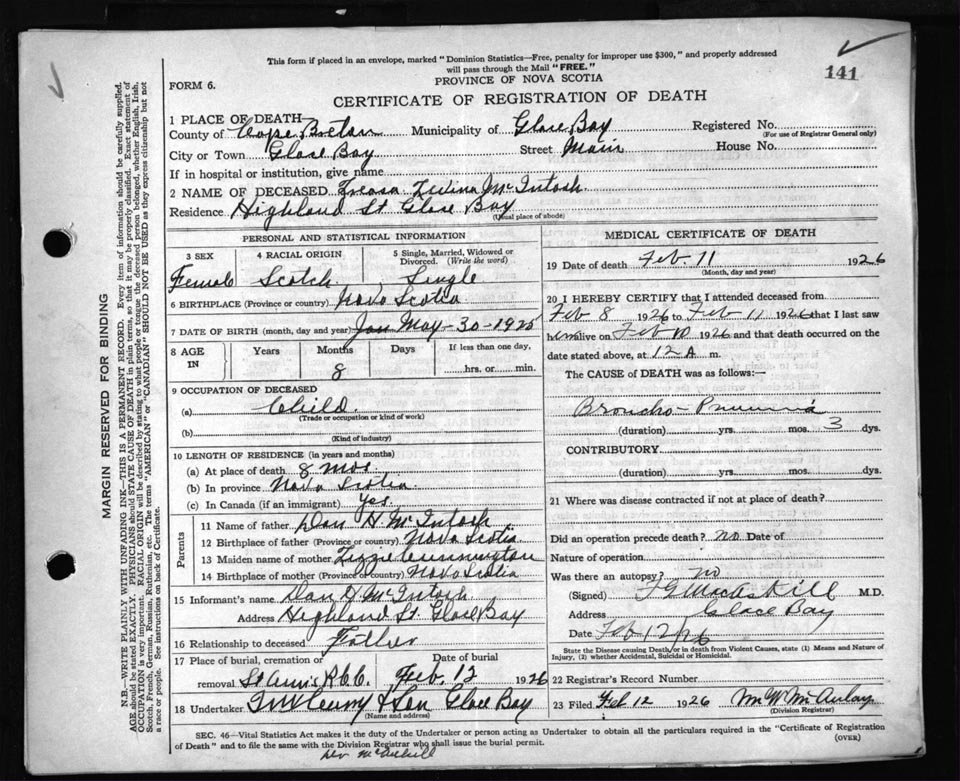 This form if placed in an envelope, marked "Dominion Statistics—Free, penalty for improper use $300," and properly addressed
will pass through the Mail "FREE."
141
PROVINCE OF NOVA SCOTIA
FORM 6.
CERTIFICATE OF REGISTRATION OF DEATH
1 PLACE OF DEATH
County of Cape Breton Municipality of Glace Bay Registered No.
(For use of Registrar General only)
City or Town Glace Bay Street Main House No.
If in hospital or institution, give name
2 NAME OF DECEASED McIntosh
Residence Highland St Glace Bay
(Usual place of abode)
PERSONAL AND STATISTICAL INFORMATION
3 SEX 4 RACIAL ORIGIN 5 Single, Married, Widowed or Divorced. (Write the word)
Female Scotch Single
6 BIRTHPLACE (Province or country) Nova Scotia
7 DATE OF BIRTH (month, day and year) Jan May-30-1925
8 AGE IN Years Months Days If less than one day,
8 hrs. or min.
9 OCCUPATION OF DECEASED
(a) Child
(Trade or occupation or kind of work)
(b)
(Kind of industry)
10 LENGTH OF RESIDENCE (in years and months)
(a) At place of death 8 mos.
(b) In province Nova Scotia
(c) In Canada (if an immigrant) Yes.
Parents
11 Name of father Dan H McIntosh
12 Birthplace of father (Province or country) Nova Scotia
13 Maiden name of mother Lizzie Cunnington
14 Birthplace of mother (Province or country) Nova Scotia
15 Informant's name Dan H McIntosh
Address Highland St. Glace Bay
16 Relationship to deceased Father
17 Place of burial, cremation or removal Date of burial
St Ann's R.C.C. Feb. 12 1926
18 Undertaker & Son Glace Bay
(Name and address)
MEDICAL CERTIFICATE OF DEATH
19 Date of death Feb 11 1926
(Month, day and year)
20 I HEREBY CERTIFY that I attended deceased from
Feb 8 1926 to Feb 11 1926 that I last saw
him alive on Feb 10 1926 and that death occurred on the
date stated above, at 12 A m.
The CAUSE of DEATH was as follows:—
Broncho-Pneumonia
(duration) yrs. mos. 3 dys.
CONTRIBUTORY.
(duration) yrs. mos. dys.
21 Where was disease contracted if not at place of death?
Did an operation precede death? no Date of
Nature of operation
Was there an autopsy? no
(Signed) MacAskill M.D.
Address Glace Bay
Date Feb 12/26
State the Disease causing Death, or in death from Violent Causes, state (1) Means and Nature of
Injury, (2) whether Accidental, Suicidal or Homicidal.
22 Registrar's Record Number
23 Filed Feb 12 1926 McAulay
(Division Registrar)
SEC. 46—Vital Statistics Act makes it the duty of the Undertaker or person acting as Undertaker to obtain all the particulars required in the "Certificate of Registration
of Death" and to file the same with the Division Registrar who shall issue the burial permit. (OVER)
MARGIN RESERVED FOR BINDING
N.B.—WRITE PLAINLY WITH UNFADING INK—THIS IS A PERMANENT RECORD. Every item of information should be carefully supplied.
AGE should be stated EXACTLY. PHYSICIANS should STATE CAUSE OF DEATH in plain terms, so that it may be properly classified. Exact statement of
OCCUPATION is very important. RACIAL ORIGIN will be described by stating to what people or tongue the deceased person belonged, whether English, Irish,
Scotch, French, German, Russian, Ruthenian, etc. The terms "AMERICAN" or "CANADIAN" SHOULD NOT BE USED as they express citizenship but not
a race or people. See instructions on back of Certificate.